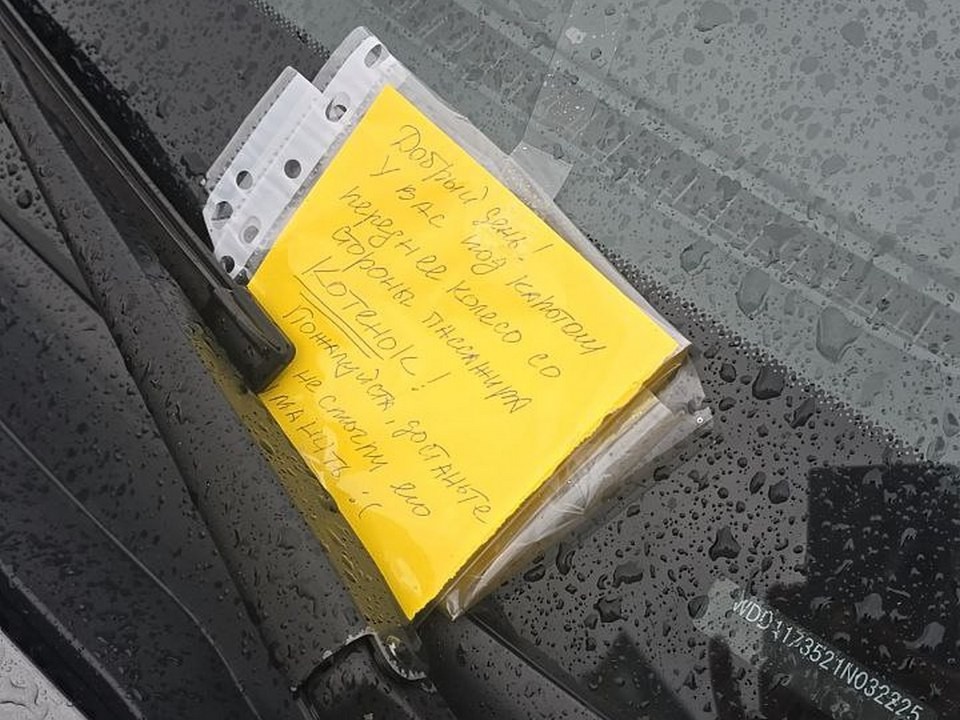 Добрый день!
У вас под капотом
переднее колесо со
стороны пассажира
Котенок!
Пожалуйста, достаньте
не смогли его
МАНИТЬ :(
WDD1173521N032225